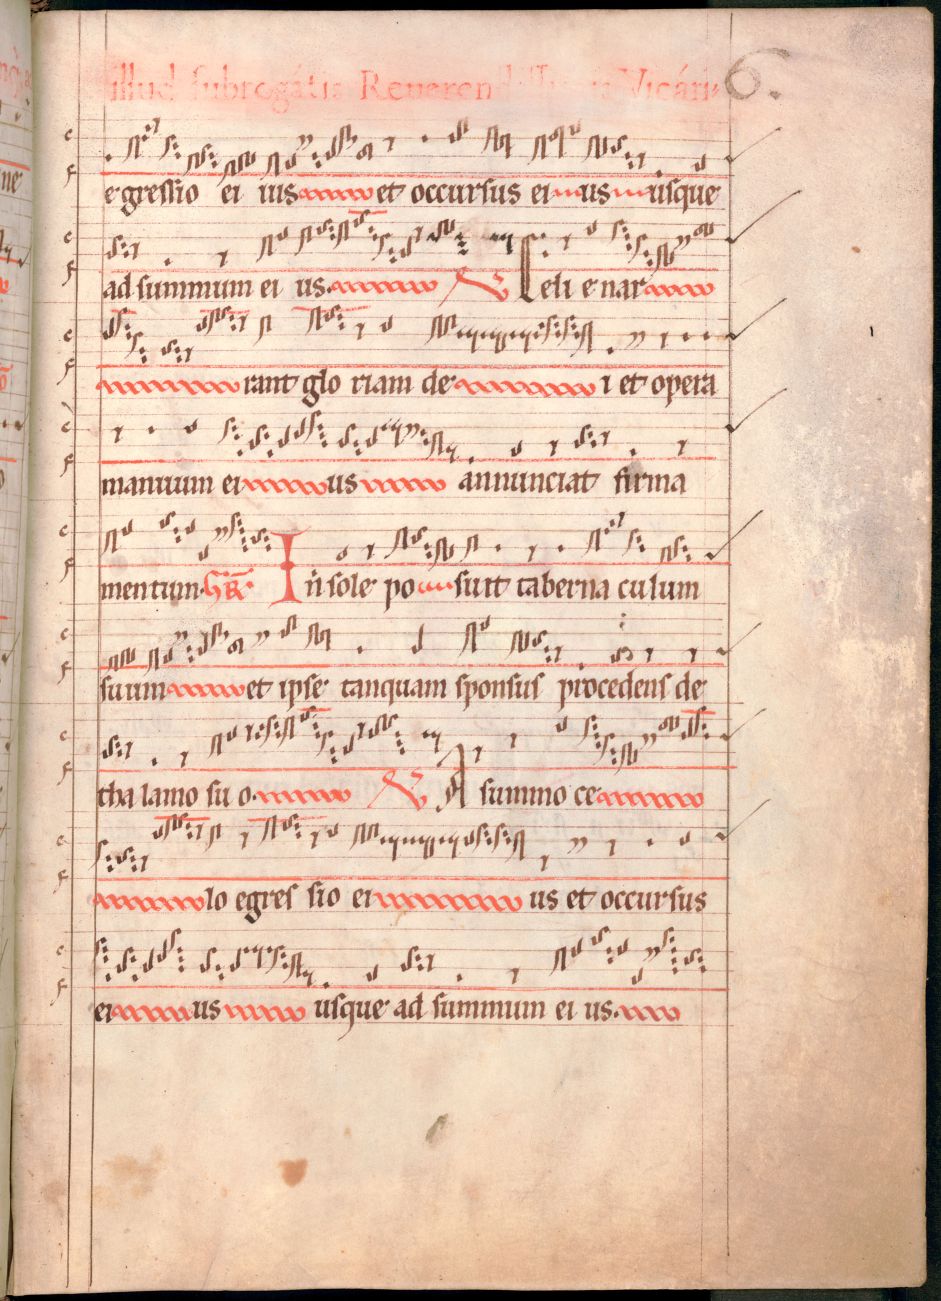 illud subrogátis Reveren Vicári 6.
egressio ei ius et occursus ei us usque
ad summum ei us. V Celi e nar
rant glo riam de i et opera
manuum ei us annunciat firma
mentum. GR In sole po suit taberna culum
suum et ipse tanquam sponsus procedens de
tha lamo su o. V A summo ce
lo egres sio ei us et occursus
ei us usque ad summum ei us.